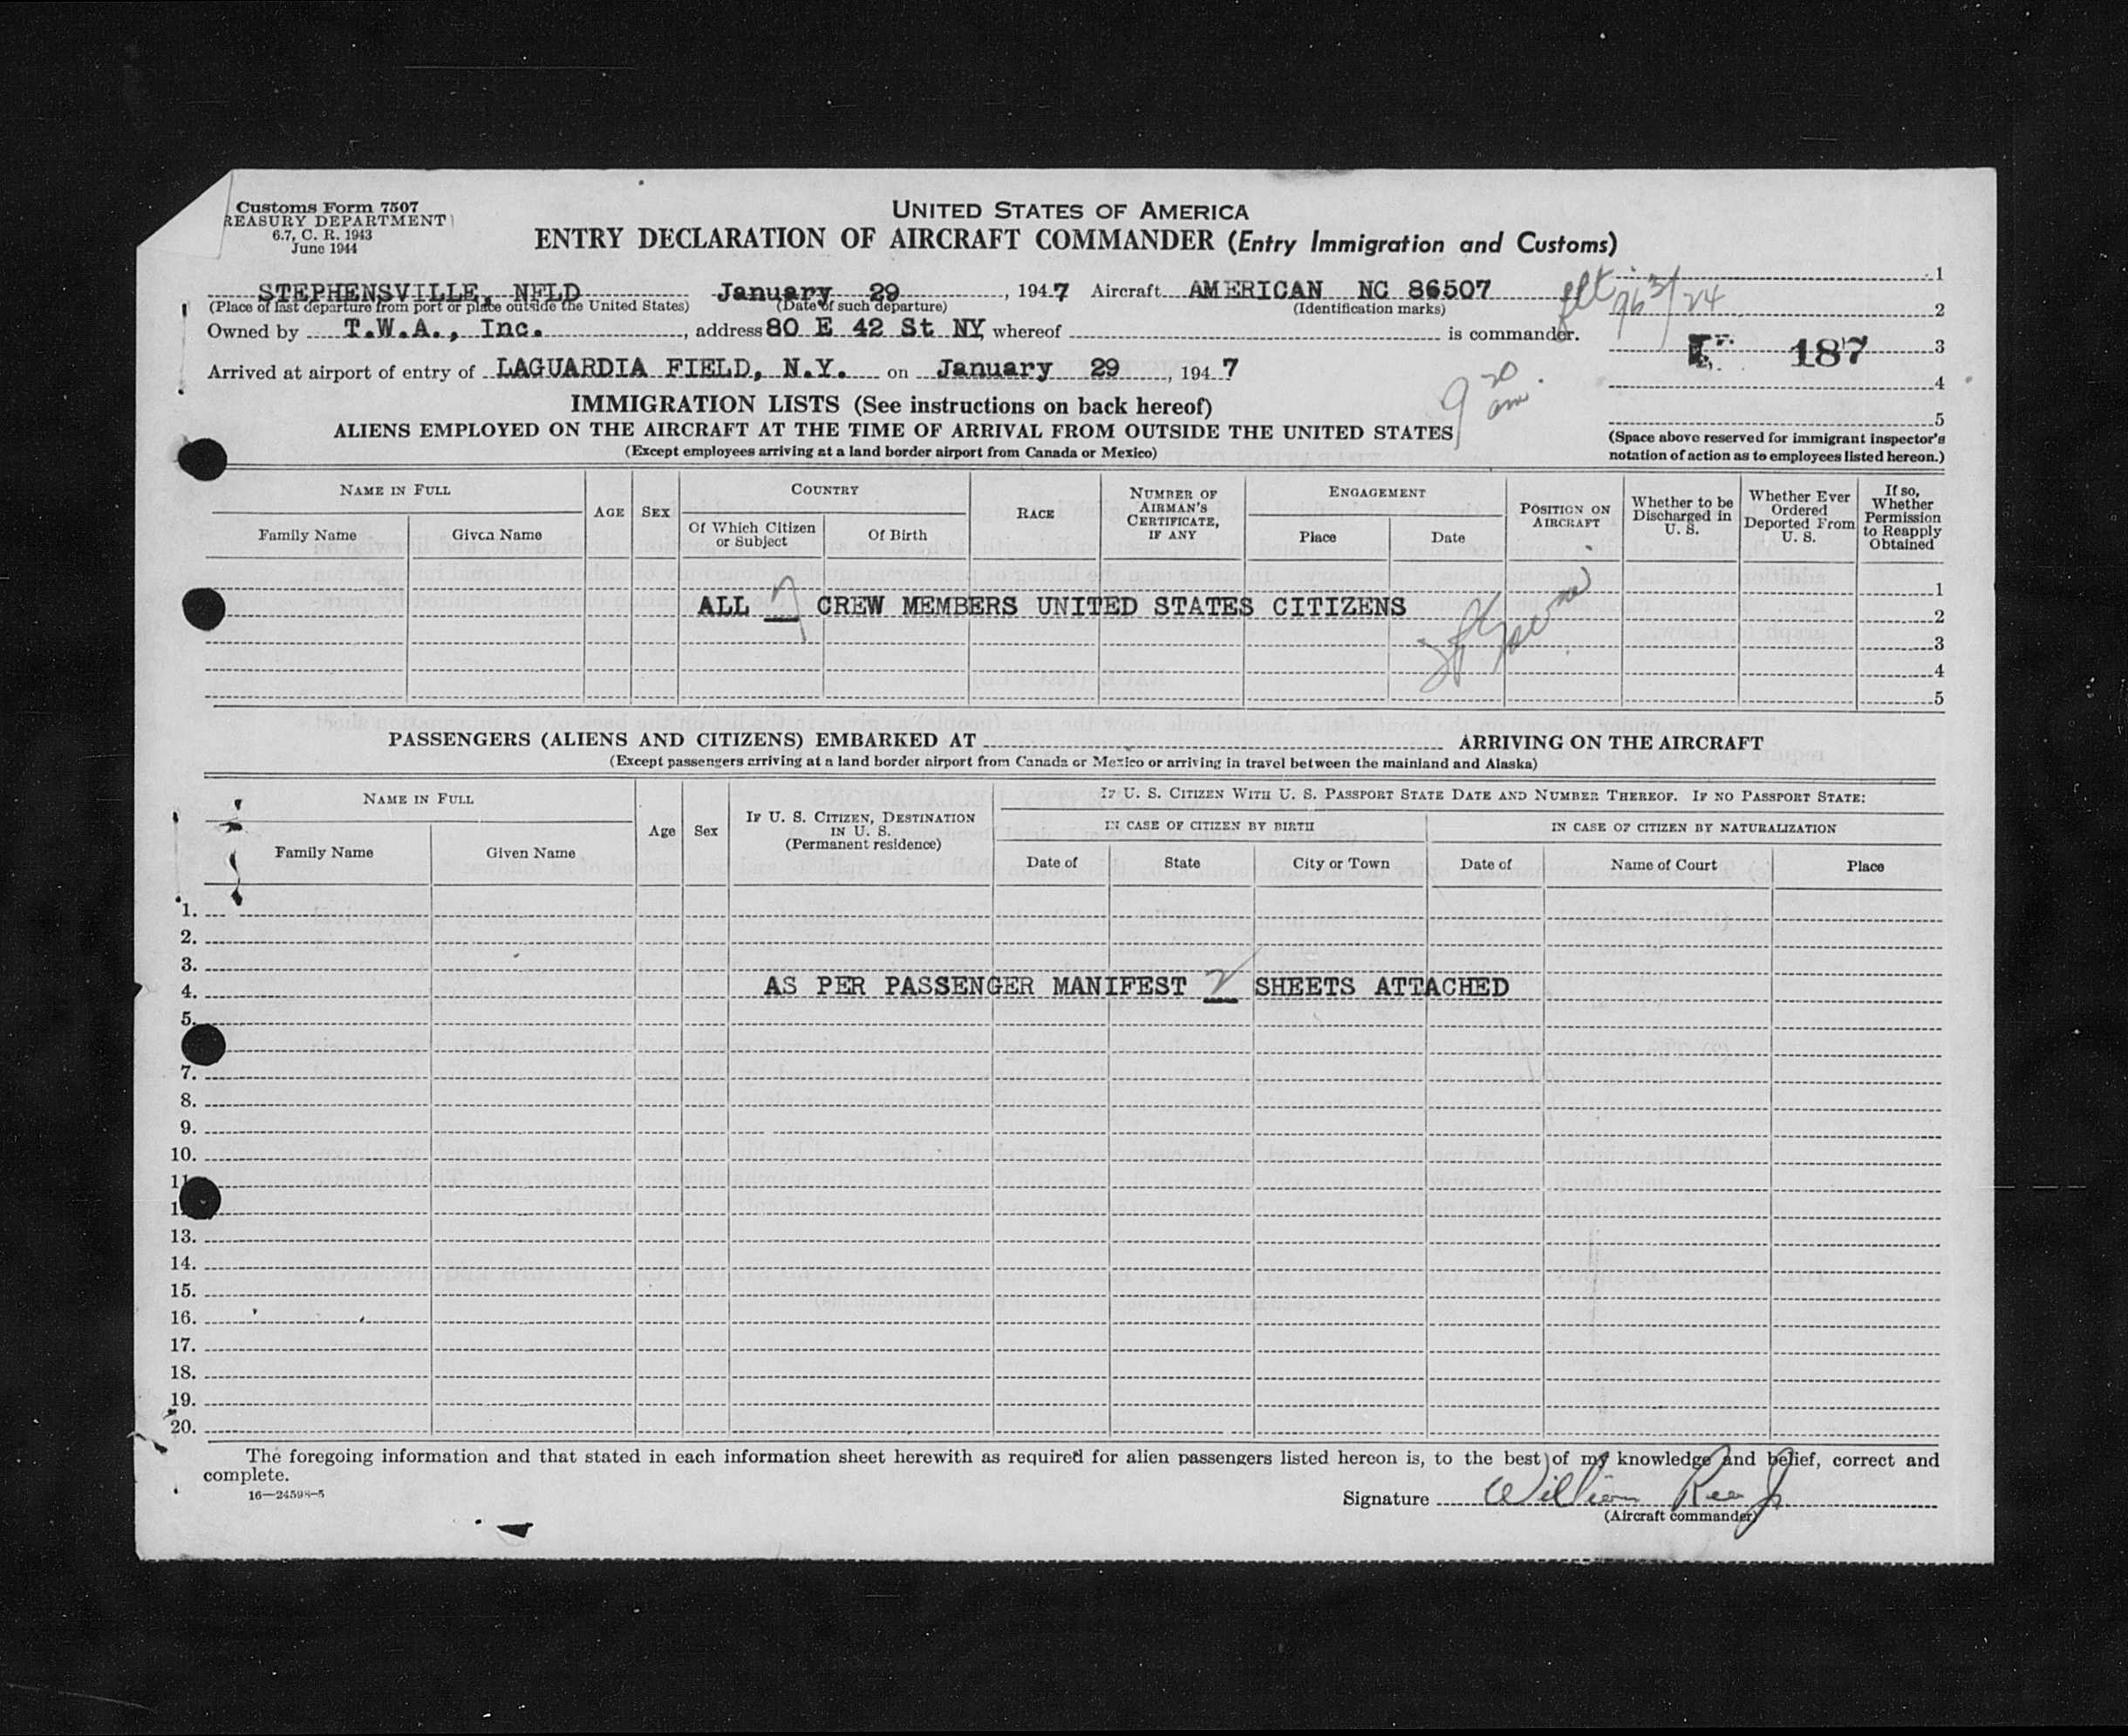 Customs Form 7507
REASURY DEPARTMENT
6.7, C. R. 1943
June 1944
UNITED STATES OF AMERICA
ENTRY DECLARATION OF AIRCRAFT COMMANDER (Entry Immigration and Customs)
STEPHENSVILLE, NFLD January 29, 1947 Aircraft AMERICAN NC 86507 flt 963/24 1
(Place of last departure from port or place outside the United States) (Date of such departure) (Identification marks) 2
Owned by T.W.A., Inc., address 80 E 42 St NY, whereof is commander.
187 3
Arrived at airport of entry of LAGUARDIA FIELD, N.Y. on January 29, 1947
4
9 20 am.
IMMIGRATION LISTS (See instructions on back hereof)
5
ALIENS EMPLOYED ON THE AIRCRAFT AT THE TIME OF ARRIVAL FROM OUTSIDE THE UNITED STATES
(Except employees arriving at a land border airport from Canada or Mexico)
(Space above reserved for immigrant inspector's
notation of action as to employees listed hereon.)
NAME IN FULL
Family Name Given Name
AGE SEX
COUNTRY
Of Which Citizen or Subject
Of Birth
RACE
NUMBER OF AIRMAN'S CERTIFICATE, IF ANY
ENGAGEMENT
Place Date
POSITION ON AIRCRAFT
Whether to be Discharged in U. S.
Whether Ever Ordered Deported From U. S.
If so, Whether Permission to Reapply Obtained
1
ALL 7 CREW MEMBERS UNITED STATES CITIZENS 2
3
4
5
PASSENGERS (ALIENS AND CITIZENS) EMBARKED AT ARRIVING ON THE AIRCRAFT
(Except passengers arriving at a land border airport from Canada or Mexico or arriving in travel between the mainland and Alaska)
NAME IN FULL
Family Name Given Name
Age Sex
IF U. S. CITIZEN, DESTINATION IN U. S.
(Permanent residence)
IF U. S. CITIZEN WITH U. S. PASSPORT STATE DATE AND NUMBER THEREOF. IF NO PASSPORT STATE:
IN CASE OF CITIZEN BY BIRTH IN CASE OF CITIZEN BY NATURALIZATION
Date of State City or Town Date of Name of Court Place
1.
2.
3.
4. AS PER PASSENGER MANIFEST 2 SHEETS ATTACHED
5.
7.
8.
9.
10.
11
1
13.
14.
15.
16.
17.
18.
19.
20.
The foregoing information and that stated in each information sheet herewith as required for alien passengers listed hereon is, to the best of my knowledge and belief, correct and
complete.
16—24598-5
Signature William Rea Jr
(Aircraft commander)